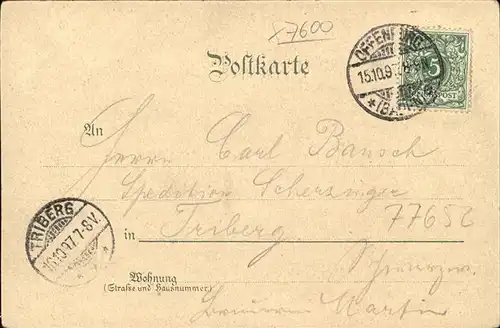 x7600
OFFENBURG
15.10.97
(BADEN)
5
POST
Postkarte
An
Herrn Carl Bausch
Spedition Scherzinger
77652
in Triberg.
TRIBERG
16.10.97.7-8V.
Wohnung
(Straße und Hausnummer)
Martin